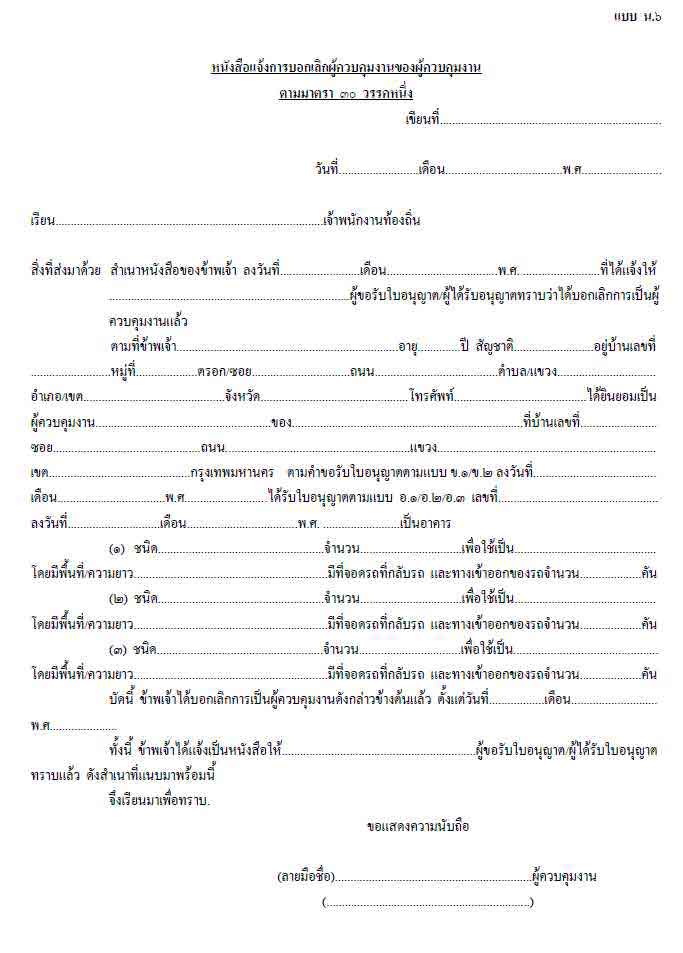 แบบ น.๖
หนังสือแจ้งการบอกเลิกผู้ควบคุมงานของผู้ควบคุมงาน
ตามมาตรา ๓๐ วรรคหนึ่ง
เขียนที่........................................................................
วันที่..........................เดือน......................................พ.ศ..........................
เรียน.......................................................................................เจ้าพนักงานท้องถิ่น
สิ่งที่ส่งมาด้วย สำเนาหนังสือของข้าพเจ้า ลงวันที่..........................เดือน....................................พ.ศ. .........................ที่ได้แจ้งให้
..............................................................................ผู้ขอรับใบอนุญาต/ผู้ได้รับอนุญาตทราบว่าได้บอกเลิกการเป็นผู้
ควบคุมงานแล้ว
ตามที่ข้าพเจ้า........................................................................อายุ..............ปี สัญชาติ..........................อยู่บ้านเลขที่
..........................หมู่ที่....................ตรอก/ซอย................................ถนน........................................ตำบล/แขวง................................
อำเภอ/เขต..............................................จังหวัด................................................โทรศัพท์...........................................ได้ยินยอมเป็น
ผู้ควบคุมงาน.........................................................ของ...........................................................................ที่บ้านเลขที่.........................
ซอย................................................ถนน............................................................แขวง........................................................................
เขต..............................................กรุงเทพมหานคร ตามคำขอรับใบอนุญาตตามแบบ ข.๑/ข.๒ ลงวันที่........................................
เดือน...................................พ.ศ..........................ได้รับใบอนุญาตตามแบบ อ.๑/อ.๒/อ.๓ เลขที่....................................................
ลงวันที่..............................เดือน....................................พ.ศ. .........................เป็นอาคาร
(๑) ชนิด......................................................จำนวน.................................เพื่อใช้เป็น..............................................
โดยมีพื้นที่/ความยาว...............................................................มีที่จอดรถที่กลับรถ และทางเข้าออกของรถจำนวน....................คัน
(๒) ชนิด......................................................จำนวน.................................เพื่อใช้เป็น..............................................
โดยมีพื้นที่/ความยาว...............................................................มีที่จอดรถที่กลับรถ และทางเข้าออกของรถจำนวน....................คัน
(๓) ชนิด......................................................จำนวน.................................เพื่อใช้เป็น..............................................
โดยมีพื้นที่/ความยาว...............................................................มีที่จอดรถที่กลับรถ และทางเข้าออกของรถจำนวน....................คัน
บัดนี้ ข้าพเจ้าได้บอกเลิกการเป็นผู้ควบคุมงานดังกล่าวข้างต้นแล้ว ตั้งแต่วันที่..................เดือน............................
พ.ศ......................
ทั้งนี้ ข้าพเจ้าได้แจ้งเป็นหนังสือให้...............................................................ผู้ขอรับใบอนุญาต/ผู้ได้รับใบอนุญาต
ทราบแล้ว ดังสำเนาที่แนบมาพร้อมนี้
จึงเรียนมาเพื่อทราบ.
ขอแสดงความนับถือ
(ลายมือชื่อ)................................................................ผู้ควบคุมงาน
(..................................................................)